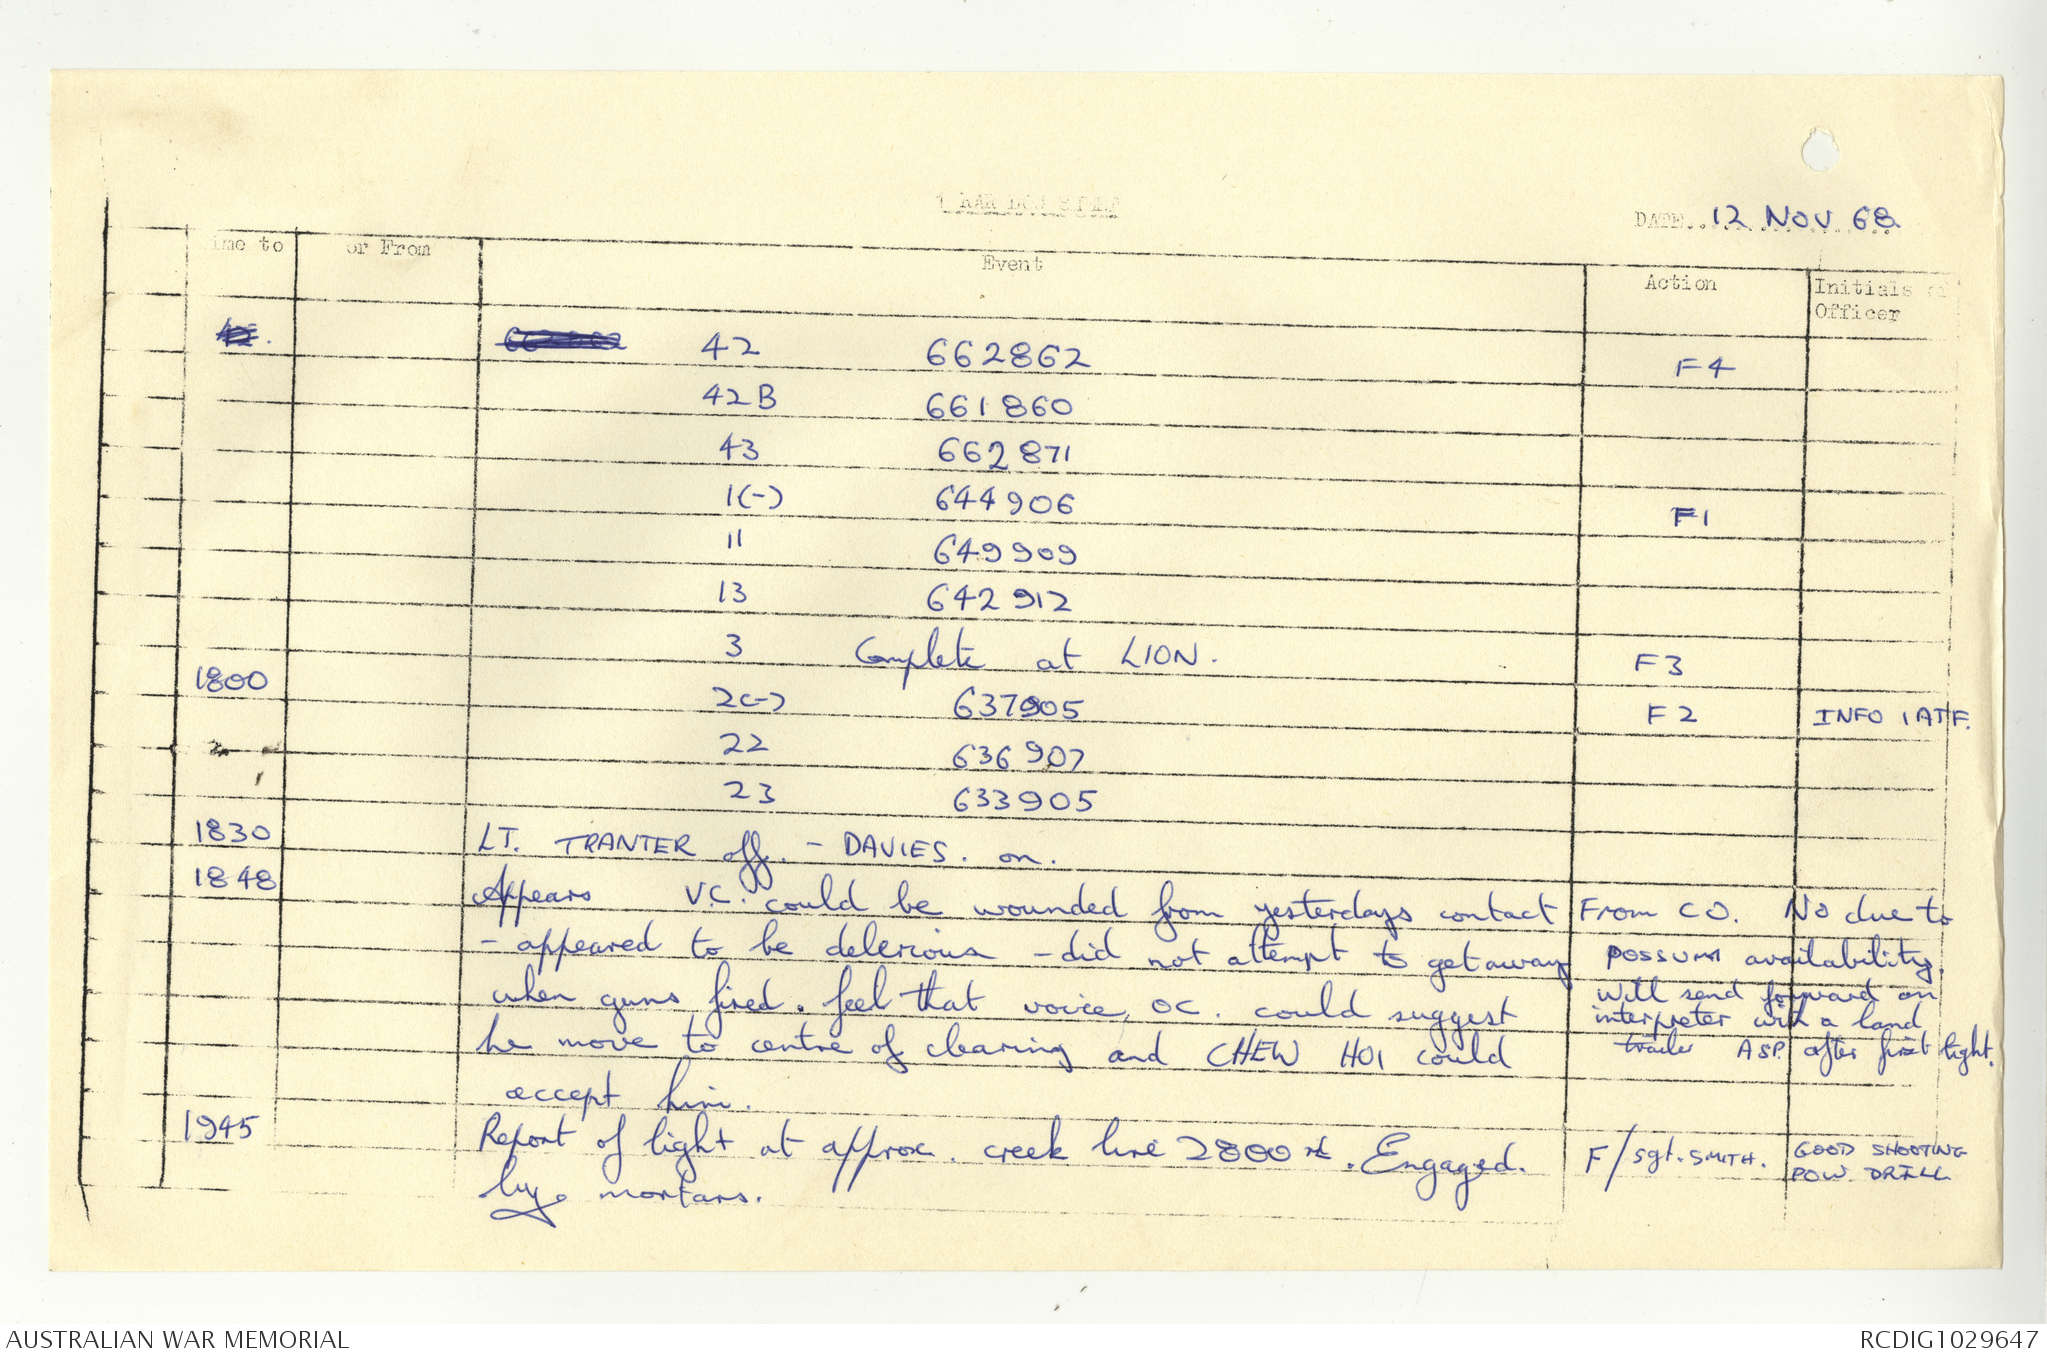 1 RAR LOG
DATE. 12 NOV 68
ime to or From Event Action Initials of Officer
42 662862 F4
42B 661860
43 662871
1(-) 644906 F1
11 649909
13 642912
3 Complete at LION. F3
1800 2(-) 637905 F2 INFO 1ATF.
22 636907
23 633905
1830 LT. TRANTER off. - DAVIES. on.
1848 Appears V.C. could be wounded from yesterdays contact From CO. No due to
- appeared to be delerious - did not attempt to get away POSSUM availability.
when guns fired. feel that voice, OC. could suggest will send forward an
interpreter with a land
he move to centre of clearing and CHEW HOI could trailer ASP. after first light.
accept him.
1945 Report of light at approx. creek line 2800 . Engaged. F/Sgt. SMITH. GOOD SHOOTING
by mortars. POW. DRILL
AUSTRALIAN WAR MEMORIAL RCDIG1029647